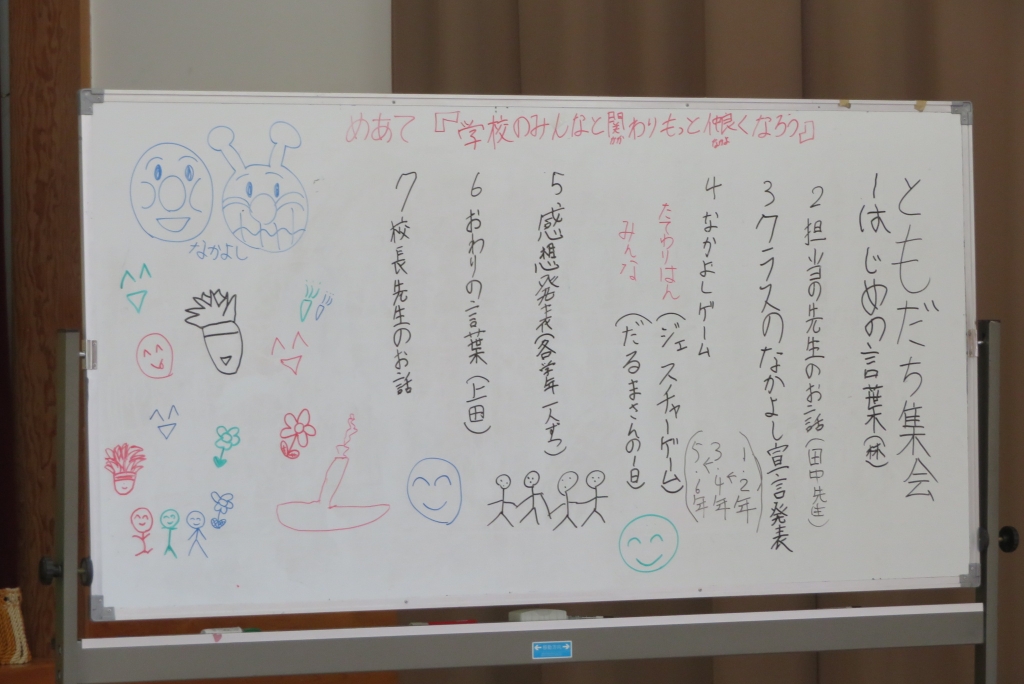 めあて『学校のみんなと関わりもっと仲良くなろう』
かか
なかよ
ともだち集会
1 はじめの言葉(林)
2 担当の先生のお話(田中先生)
3 クラスのなかよし宣言発表
(1・2年
←3・4年
←5・6年)
4 なかよしゲーム
たてわりはん(ジェスチャーゲーム)
みんな(だるまさんの1日)
5 感想発表(各学年一人ずつ)
6 おわりの言葉(上田)
7 校長先生のお話
なかよし